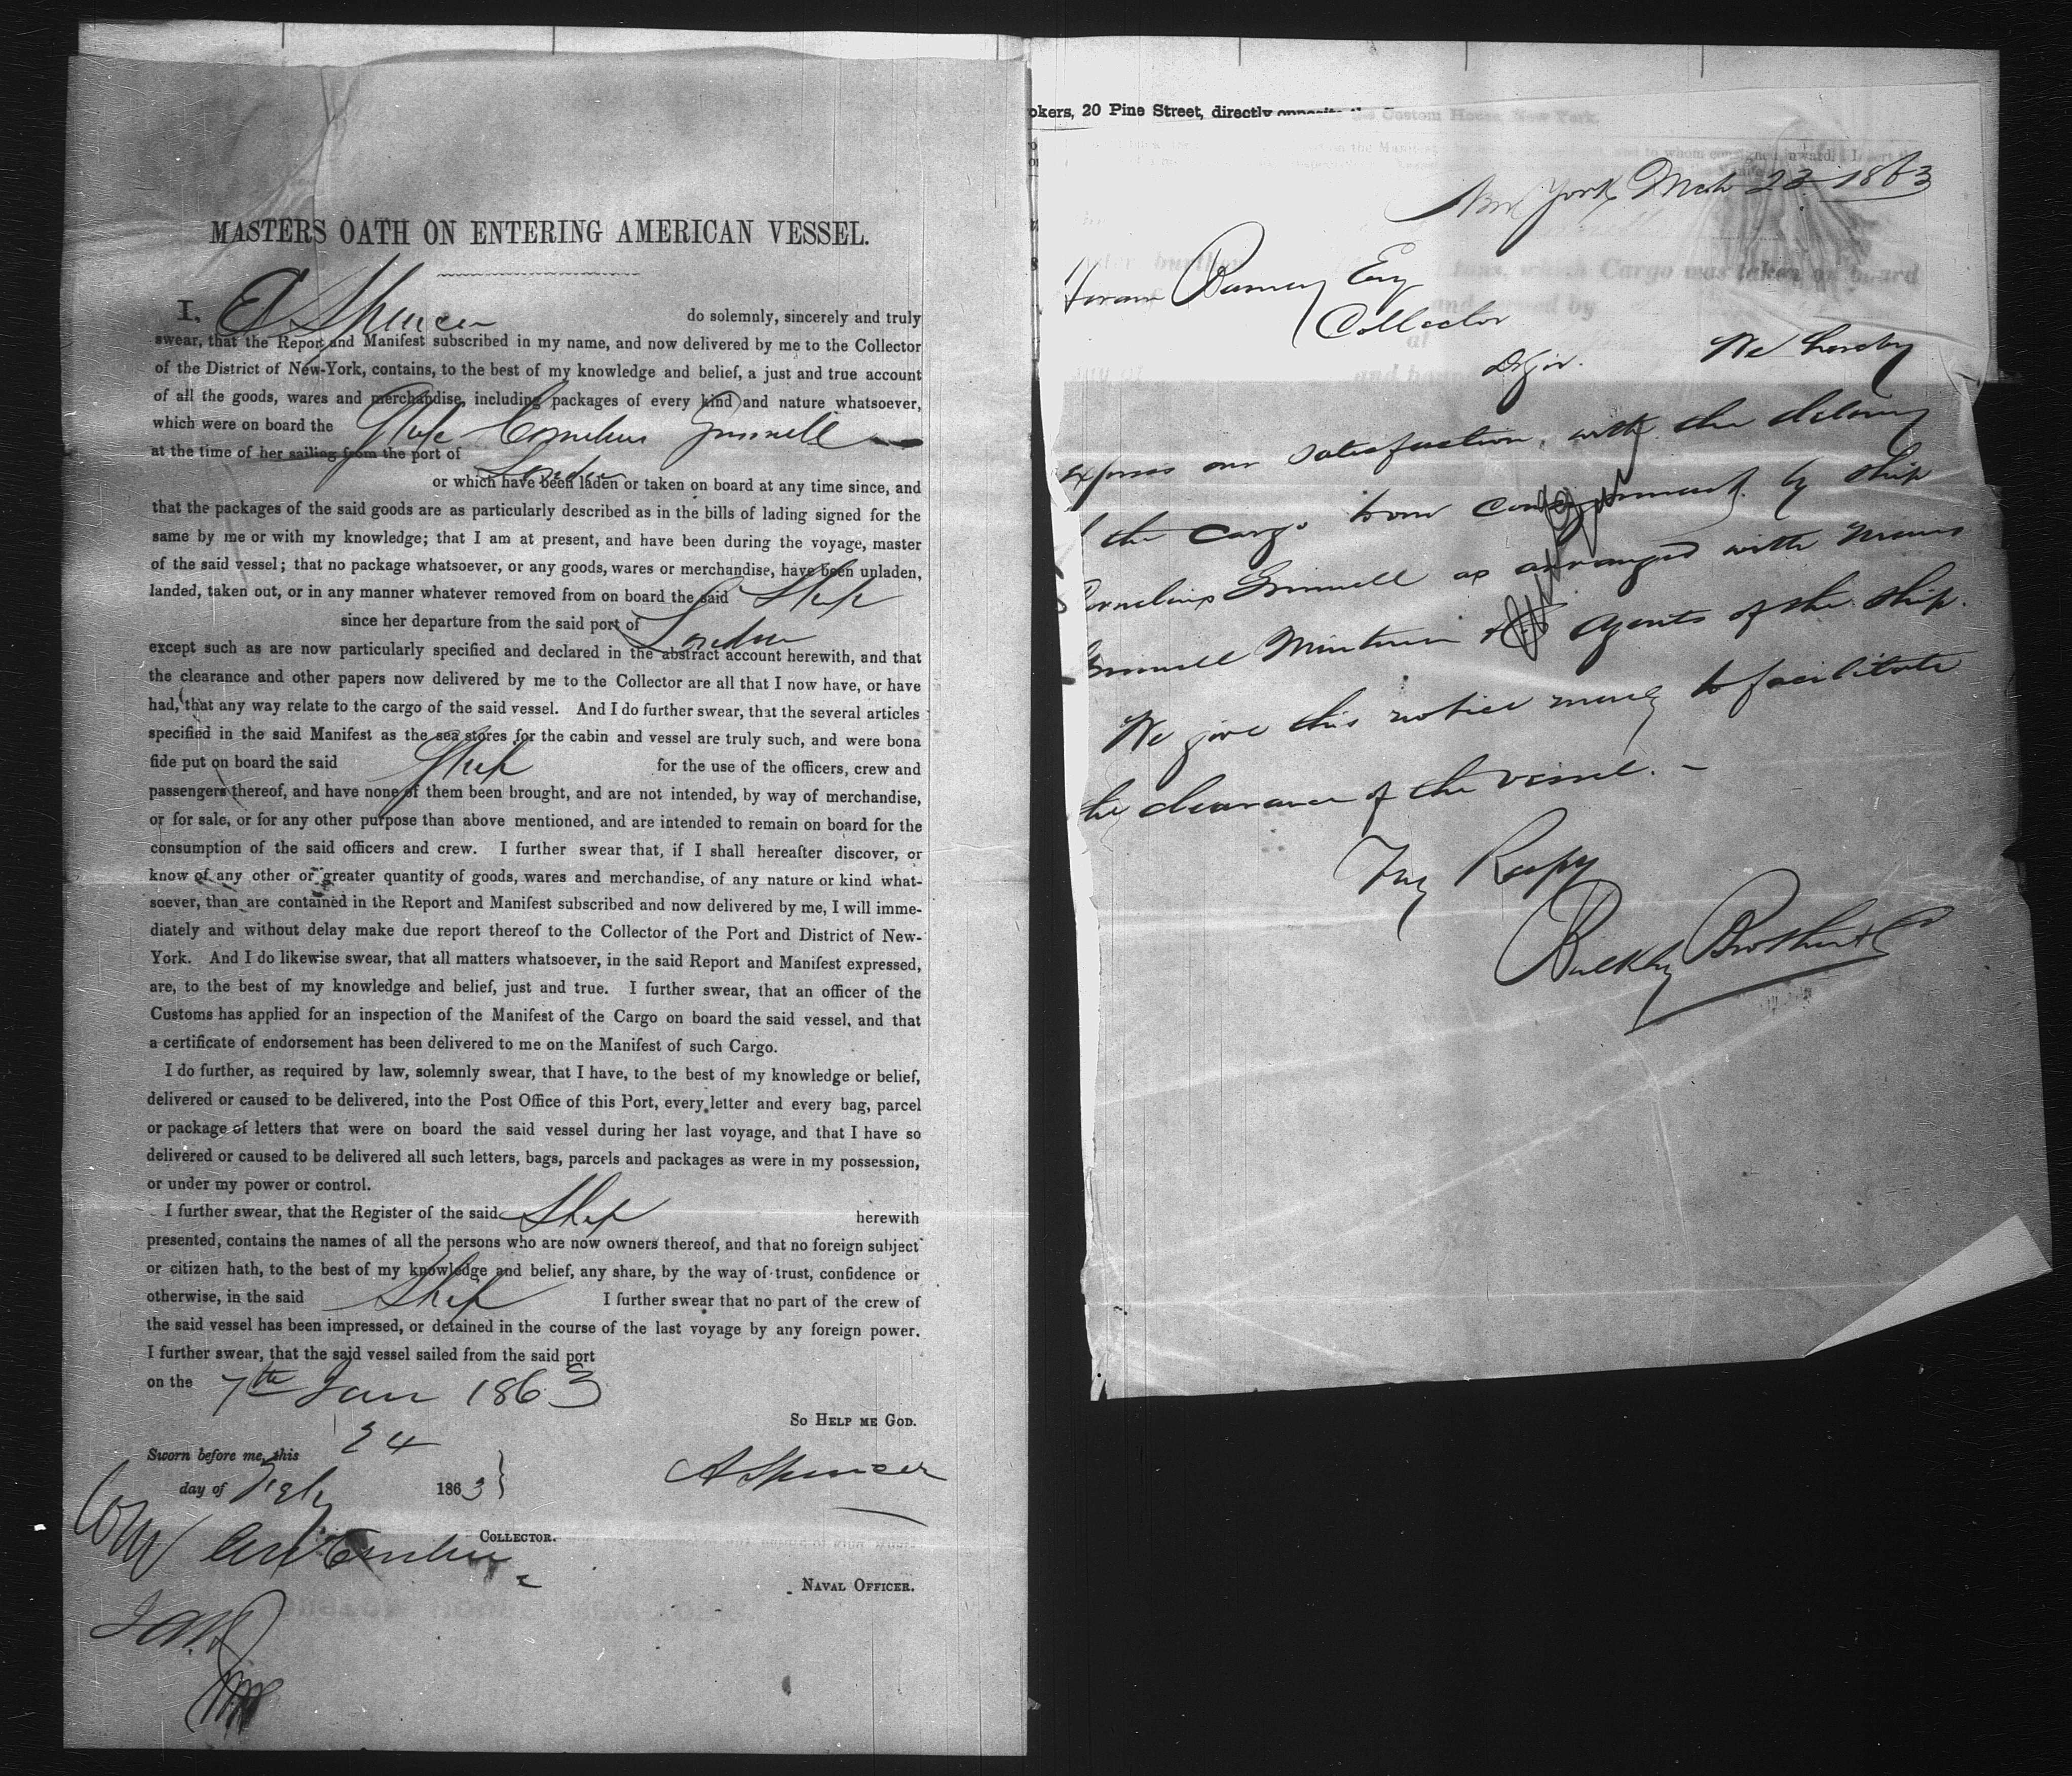 MASTERS OATH ON ENTERING AMERICAN VESSEL.
I, A Spencer do solemnly, sincerely and truly
swear, that the Report and Manifest subscribed in my name, and now delivered by me to the Collector
of the District of New-York, contains, to the best of my knowledge and belief, a just and true account
of all the goods, wares and merchandise, including packages of every kind and nature whatsoever,
which were on board the Ship Cornelius Grinnell
at the time of her sailing from the port of London
or which have been laden or taken on board at any time since, and
that the packages of the said goods are as particularly described as in the bills of lading signed for the
same by me or with my knowledge; that I am at present, and have been during the voyage, master
of the said vessel; that no package whatsoever, or any goods, wares or merchandise, have been unladen,
landed, taken out, or in any manner whatever removed from on board the said Ship
since her departure from the said port of London
except such as are now particularly specified and declared in the abstract account herewith, and that
the clearance and other papers now delivered by me to the Collector are all that I now have, or have
had, that any way relate to the cargo of the said vessel. And I do further swear, that the several articles
specified in the said Manifest as the sea stores for the cabin and vessel are truly such, and were bona
fide put on board the said Ship for the use of the officers, crew and
passengers thereof, and have none of them been brought, and are not intended, by way of merchandise,
or for sale, or for any other purpose than above mentioned, and are intended to remain on board for the
consumption of the said officers and crew. I further swear that, if I shall hereafter discover, or
know of any other or greater quantity of goods, wares and merchandise, of any nature or kind what-
soever, than are contained in the Report and Manifest subscribed and now delivered by me, I will imme-
diately and without delay make due report thereof to the Collector of the Port and District of New-
York. And I do likewise swear, that all matters whatsoever, in the said Report and Manifest expressed,
are, to the best of my knowledge and belief, just and true. I further swear, that an officer of the
Customs has applied for an inspection of the Manifest of the Cargo on board the said vessel, and that
a certificate of endorsement has been delivered to me on the Manifest of such Cargo.
I do further, as required by law, solemnly swear, that I have, to the best of my knowledge or belief,
delivered or caused to be delivered, into the Post Office of this Port, every letter and every bag, parcel
or package of letters that were on board the said vessel during her last voyage, and that I have so
delivered or caused to be delivered all such letters, bags, parcels and packages as were in my possession,
or under my power or control.
I further swear, that the Register of the said Ship herewith
presented, contains the names of all the persons who are now owners thereof, and that no foreign subject
or citizen hath, to the best of my knowledge and belief, any share, by the way of trust, confidence or
otherwise, in the said Ship I further swear that no part of the crew of
the said vessel has been impressed, or detained in the course of the last voyage by any foreign power.
I further swear, that the said vessel sailed from the said port
on the 7th Jan 1863
So Help me God.
Sworn before me, this 24
day of Feby 1863
A Spencer
Collector.
Naval Officer.
okers, 20 Pine Street, directly opposite the Custom House, New York.
New York, Mch 23 1863
Hiram Barney Esq
Collector
D Sir. We hereby
express our satisfaction, with the delivery
of the cargo to our consignment by ship
Cornelius Grinnell as arranged with Messrs
Grinnell Minturn & Co Agents of the ship.
We give this notice merely to facilitate
the clearance of the vessel. -
Very Respy
Bulkley Brothers & Co